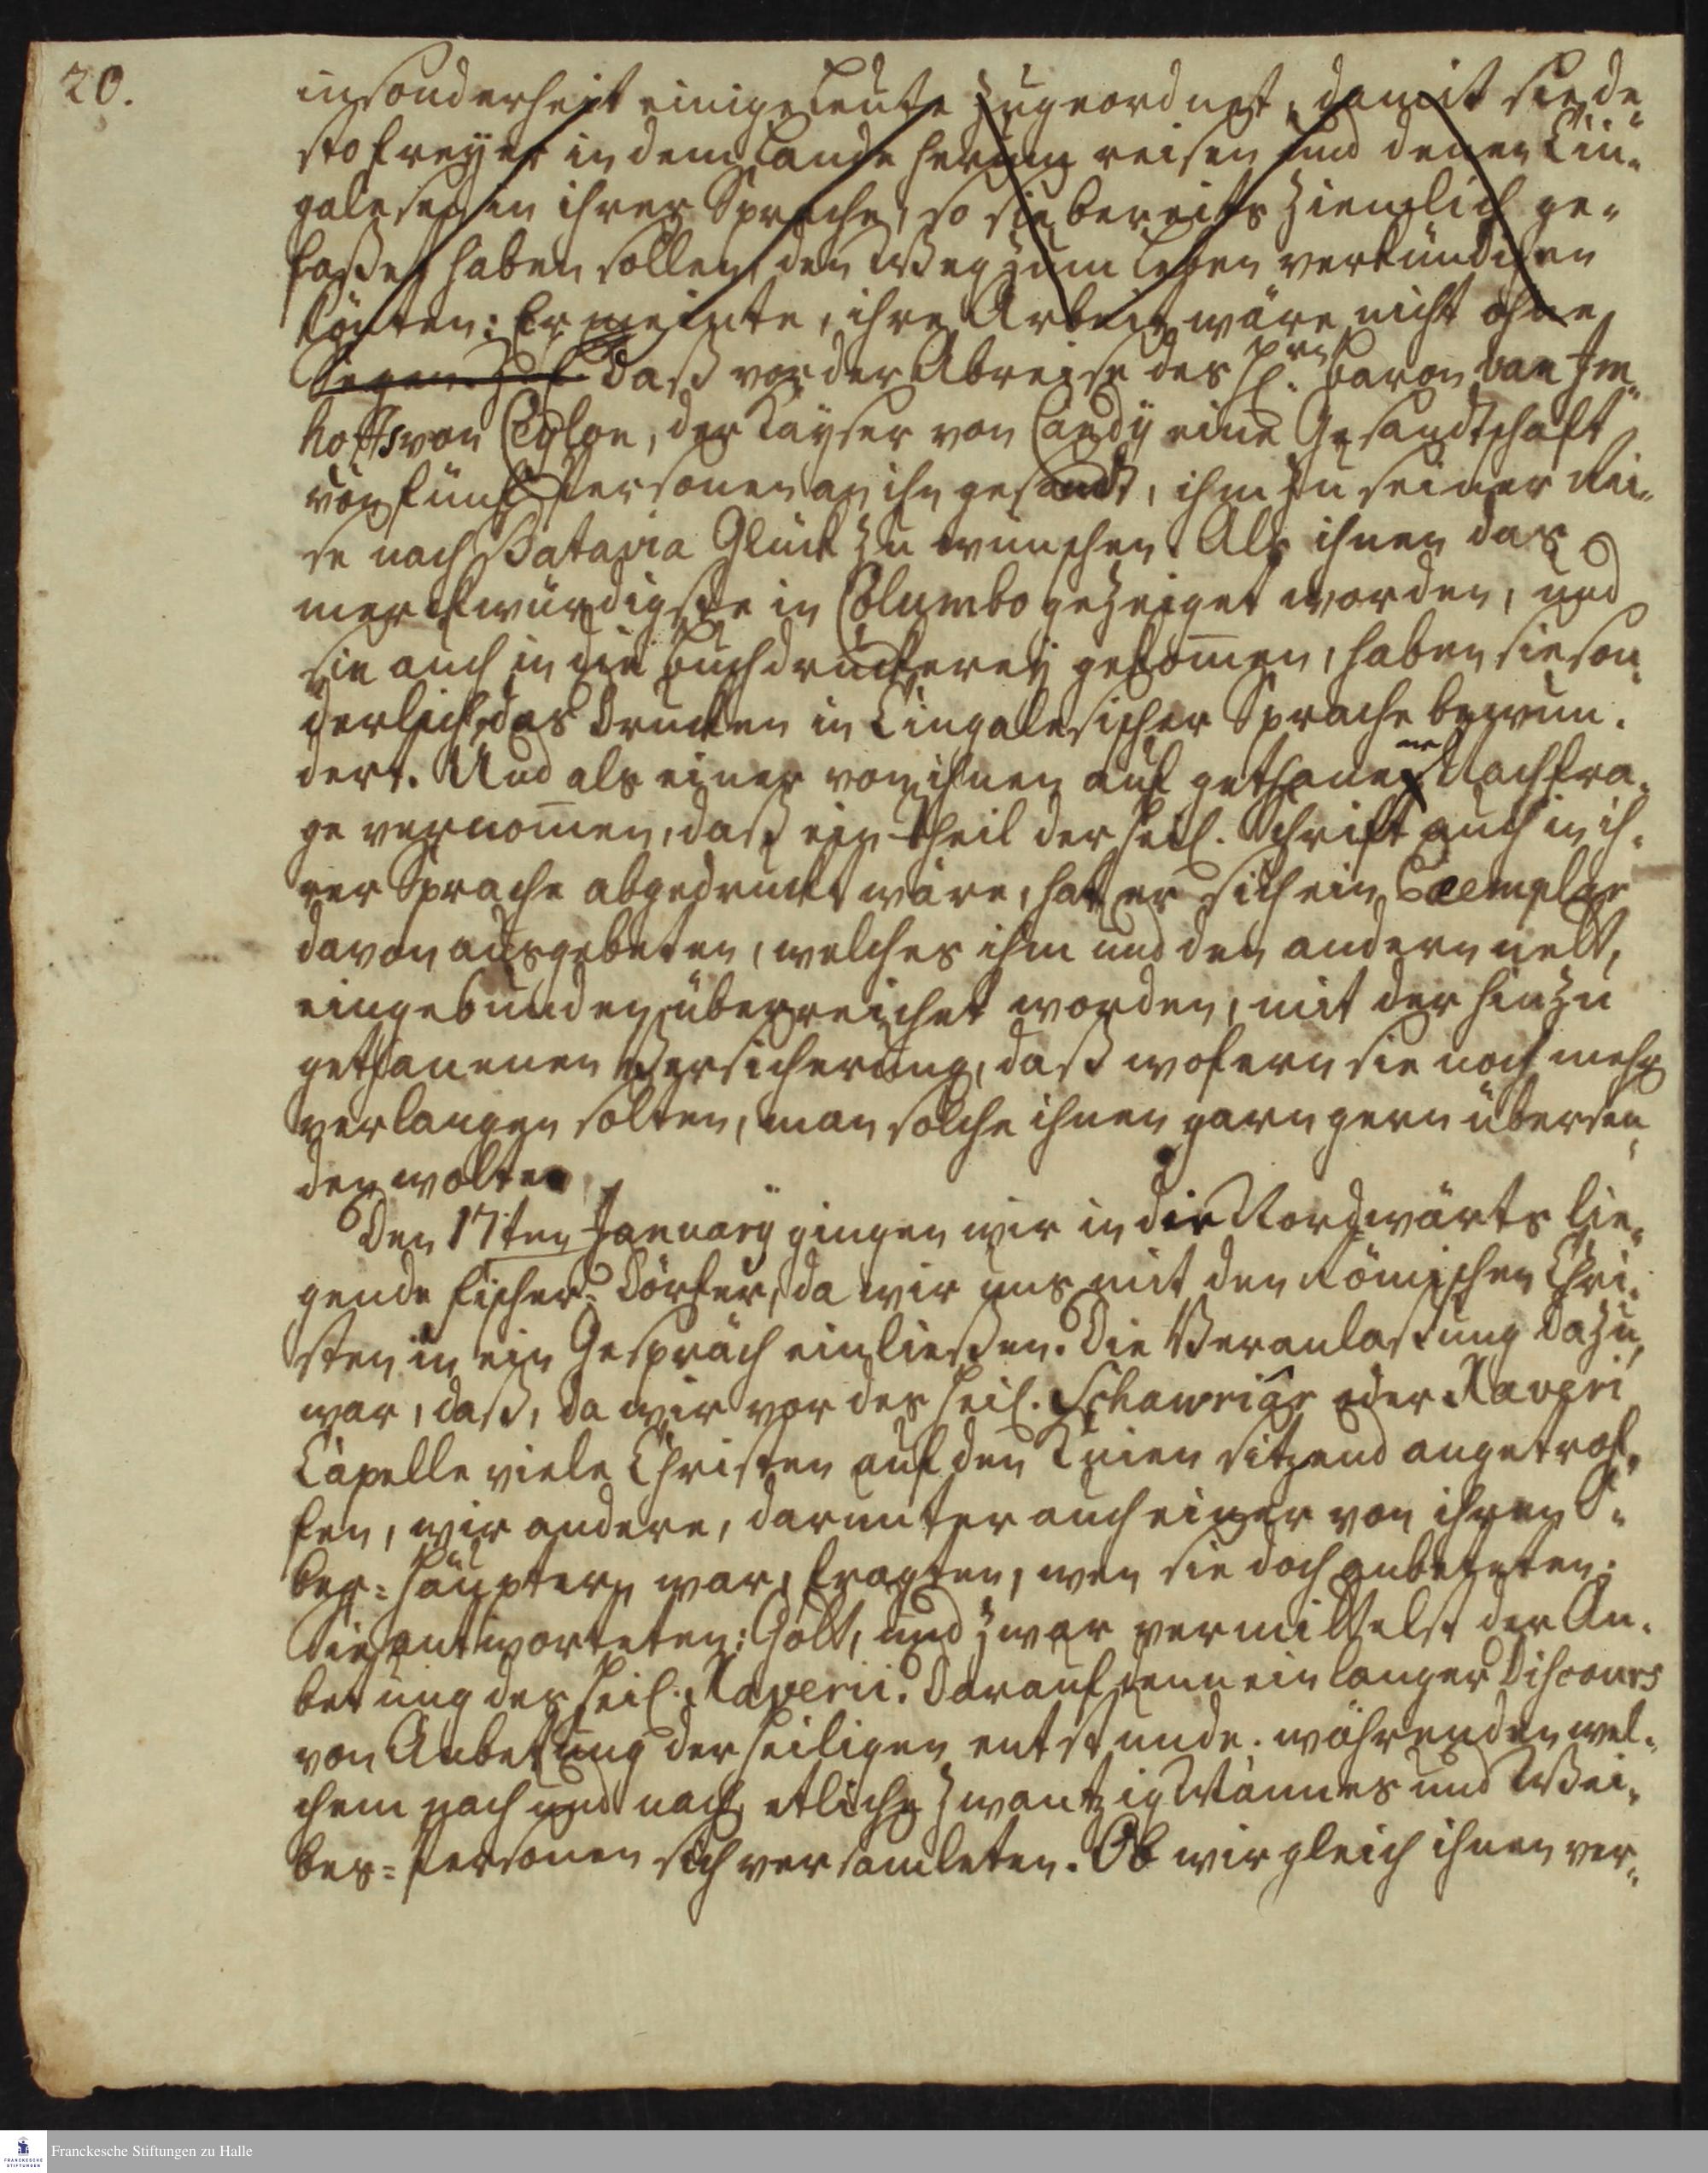 20.
insonderheit einige Leute zugeordnet, damit sie de-
sto freyer in dem Lande herum reisen und denen Cin-
galesen in ihrer Sprache, so sie bereits ziemlich ge-
faßet haben sollen, den Weg zum Leben verkündigen
könten: Er meinte, ihre Arbeit wäre nicht ohne
Segen. Z. E. daß vor der Abreise des H. Baron van Im-
hoffs von Ceylon, der Kayser von Candy eine Gesandtschaft
von fünf Personen an ihn gesandt, ihm zu seiner Rei-
se nach Batavia Glück zu wünschen. Als ihnen das
merckwürdigste in Columbo gezeiget worden, und
sie auch in die Buchdruckerey gekom̅en, haben sie son-
derlich das Drucken in Cingalesischer Sprache bewun-
dert. Und als einer von ihnen auf gethane Nachfra-
ge vernom̅en, daß ein Theil der heil. Schrift auch in ih-
rer Sprache abgedruckt wäre, hat er sich ein Exemplar
davon ausgebeten, welches ihm und den andern nett,
eingebunden überreichet worden, mit der hinzu
gethanenen Versicherung, daß wofern sie noch mehr
verlangen solten, man solche ihnen garn gern übersen-
den wolte.
Den 17ten January gingen wir in die Nordwärts lie-
gende Fischer-Dörfer, da wir uns mit den Römischen Chri-
sten in ein Gespräch einließen. Die Veranlaßung dazu,
war, daß, da wir vor des heil. Schawriâr oder Xaveri
Capelle viele Christen auf den Knien sitzend angetrof-
fen, wir andere, darunter auch einer von ihren O-
ber-Häuptern war, fragten, wen sie doch anbeteten;
Sie antworteten: Gott, und zwar vermittelst der An-
betung des heil. Xaverii. Darauf denn ein langer Discours
von Anbetung der Heiligen entstunde. währenden wel-
chem nach und nach etliche zwantzig Männes und Wei-
bes-Personen sich versamleten. Ob wir gleich ihnen ver-
Franckesche Stiftungen zu Halle
FRANCKESCHE
STIFTUNGEN